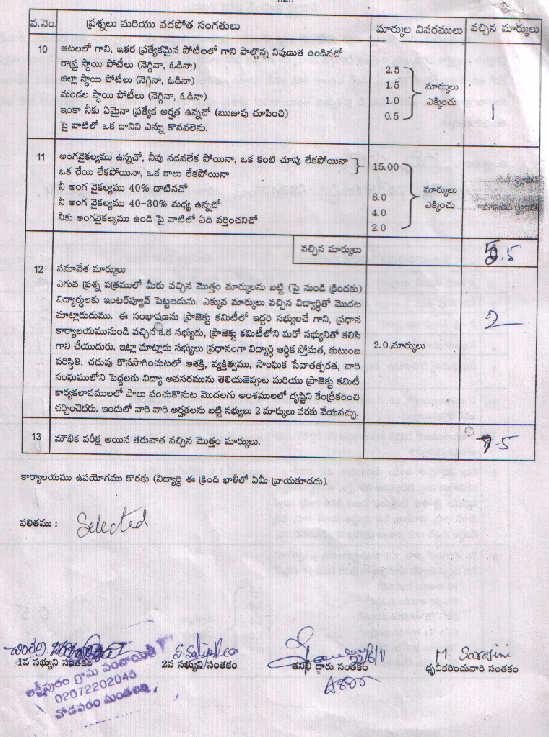 వ.నెం. ప్రశ్నలు మరియు వడపోత సంగతులు మార్కుల వివరములు వచ్చిన మార్కులు
10 ఆటలలో గాని, ఇతర ప్రత్యేకమైన పోటీలలో గాని పాల్గొన్న నిపుణత ఉండినచో
రాష్ట్ర స్థాయి పోటీలు (నెగ్గినా, ఓడినా) 2.5
జిల్లా స్థాయి పోటీలు (నెగ్గినా, ఓడినా) 1.5 మార్కులు
మండల స్థాయి పోటీలు (నెగ్గినా, ఓడినా) 1.0 ఎక్కించు 1
ఇంకా నీకు ఏమైనా ప్రత్యేక అర్హత ఉన్నచో (ఋజువు చూపించి) 0.5
పై వాటిలో ఒక దానిని ఎన్ను కొనవలెను.
11 అంగవైకల్యము ఉన్నచో, నీవు నడవలేక పోయినా, ఒక కంటి చూపు లేకపోయినా 15.00
ఒక చేయి లేకపోయినా, ఒక కాలు లేకపోయినా
నీ అంగ వైకల్యము 40% దాటినచో 8.0 మార్కులు
నీ అంగ వైకల్యము 40-30% మధ్య ఉన్నచో 4.0 ఎక్కించు
నీకు అంగవైకల్యము ఉండి పై వాటిలో ఏది వర్తించనిచో 2.0
వచ్చిన మార్కులు 5.5
12 సమావేశ మార్కులు
ఎగువ ప్రశ్న పత్రములో మీరు వచ్చిన మొత్తం మార్కులను బట్టి (పై నుండి క్రిందకు)
విద్యార్థులకు ఇంటర్‌వ్యూలో పెట్టబడును. ఎక్కువ మార్కులు వచ్చిన విద్యార్థితో మొదట
మాట్లాడుదుము. ఈ సంభాషణను ప్రాజెక్టు కమిటీలో ఇద్దరి సభ్యులచే గాని, ప్రధాన 2
కార్యాలయమునుండి వచ్చిన ఒక సభ్యుడు, ప్రాజెక్టు కమిటీలోని మరో సభ్యునితో కలిసి
గాని చేయుదురు. ఇట్లా మాట్లాడు సభ్యులు ప్రధానంగా విద్యార్థి ఆర్థిక స్తోమత, కుటుంబ 2.0 మార్కులు
పరిస్థితి, చదువు కొనసాగించుటలో ఆసక్తి, వ్యక్తిత్వము, సాంఘిక సేవాతత్పరత, వారి
సంఘములోని పెద్దలకు విద్యా అవసరమును తెలియజెప్పుట మరియు ప్రాజెక్టు కమిటీ
కార్యకలాపములలో పాలు పంచుకొనుట మొదలగు అంశములలో దృష్టిని కేంద్రీకరించి
చర్చించెదరు. ఇందులో వారి వారి అర్హతలను బట్టి సభ్యులు 2 మార్కులు వరకు వేయవచ్చు.
13 మౌఖిక పరీక్ష అయిన తరువాత వచ్చిన మొత్తం మార్కులు. 7.5
కార్యాలయము ఉపయోగము కొరకు (విద్యార్థి ఈ క్రింది ఖాళీలో ఏమీ వ్రాయకూడదు).
ఫలితము : Selected
1వ సభ్యుని సంతకం 2వ సభ్యుని సంతకం సంతకం M. Sarojini
ధృవీకరించువారి సంతకం
లక్ష్మీపురం గ్రామ పంచాయితీ
02072202045